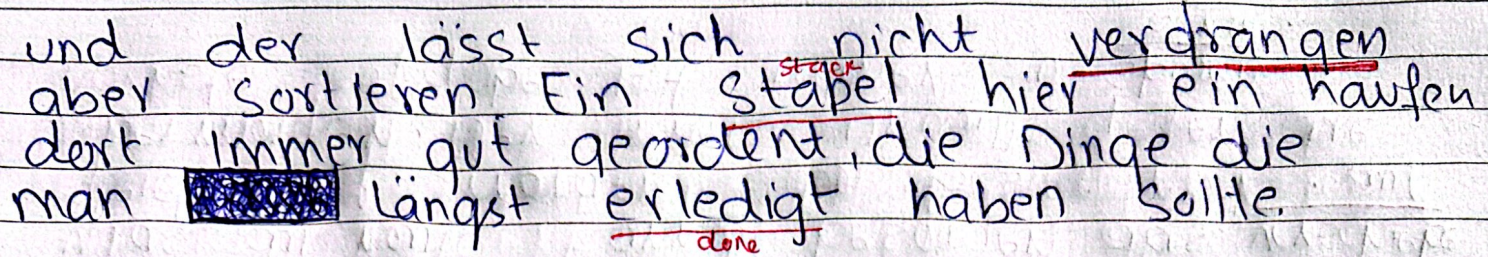 und der lässt sich nicht verdrangen
stack
aber sortieren. Ein Stapel hier ein haufen
dort Immer gut geordent, die Dinge die
man längst erledigt haben sollte.
done